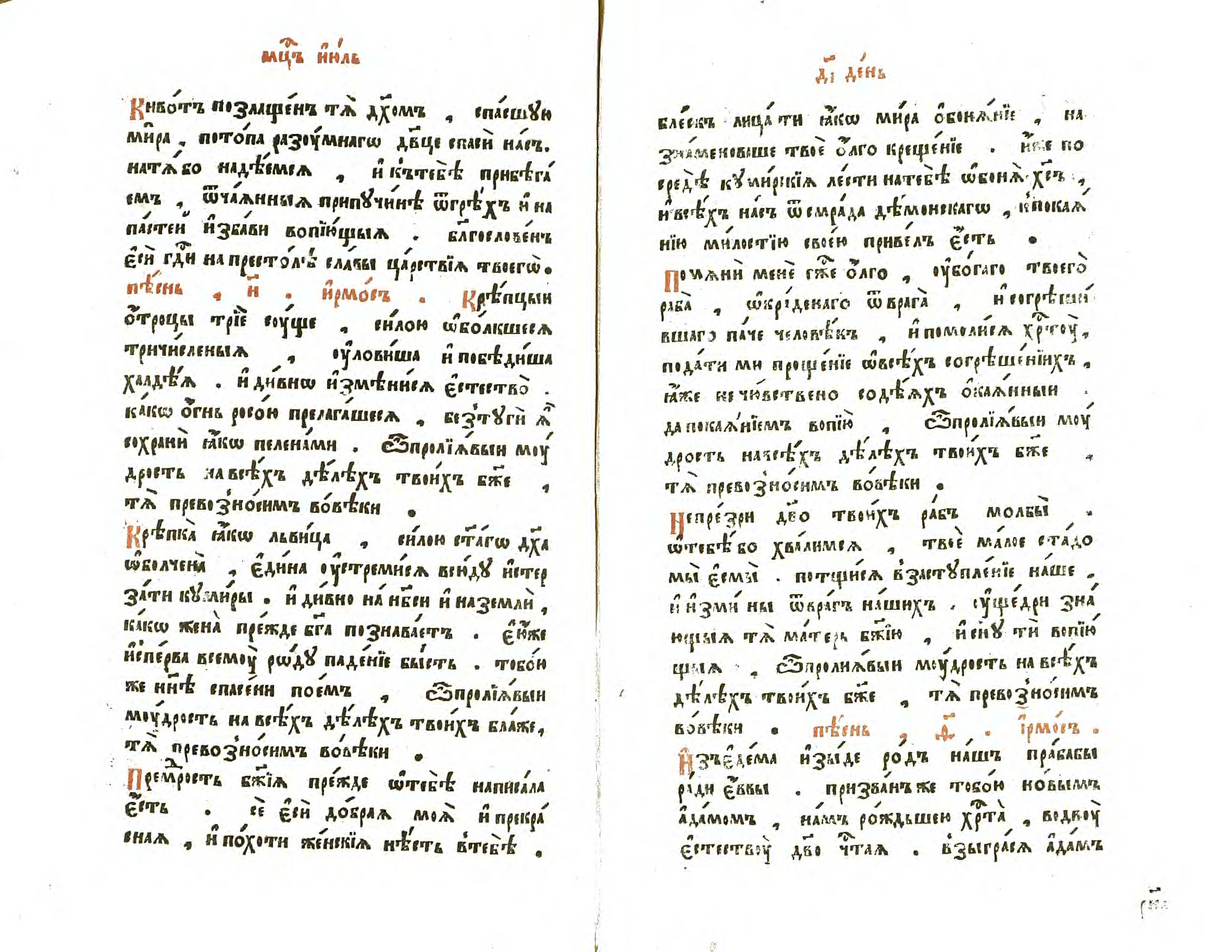 мц҇ъ и҆ю́ль
Киво́тъ позлаще́нъ тѧ̀ дх҃омъ , спа́сшꙋю
ми́ра , пото́па разꙋ́мнагѡ дв҃це спасѝ на́съ.
натѧ́ бо надѣ́емсѧ , и҆ къ тебѣ̀ прибѣга́
емъ , ѿча́ѧнныѧ припꙋчи́нѣ ѿ грѣ́хъ и҆ на
па́стей и҆зба́ви вопїю́щыѧ . бл҃гослове́нъ
є҆сѝ гд҃и на престо́лѣ сла́вы ца́рствїѧ твоегѡ̀.
пѣ́снь , и҃ . і҆рмо́съ . Крѣ́пцыи
ѻ҆́троцы трїѐ сꙋ́ще , си́лою ѡ҆бо́лкшесѧ
тричи́сленыѧ , оу҆лови́ша и҆ побѣди́ша
халдѣ́ѧ . и҆ ди́внѡ и҆змѣни́сѧ є҆стество̀ .
ка́кѡ ѻ҆́гнь росо́ю прелага́шесѧ , без̾тꙋгѝ ѧ҆̀
сохранѝ ꙗ҆́кѡ пелена́ми . Ѽпролїѧ́выи моу́
дрость на всѣ́хъ дѣ́лѣхъ твои́хъ бж҃е ,
тѧ̀ превоз̾но́симъ во́вѣки .
Крѣпка̀ ꙗ҆́кѡ льви́ца , си́лою ст҃а́гѡ дх҃а
ѡ҆болчена̀ , є҆ди́на оу҆стреми́сѧ вси́дꙋ и҆стер
за́ти кꙋми́ры . и҆ ди́вно на нб҃си и҆ на землѝ ,
ка́кѡ жена̀ пре́жде бг҃а познава́етъ . є҆ю́же
и҆спе́рва всемоу̀ рѡ́дꙋ паде́нїе бы́сть . тобо́ю
же нн҃ѣ спасе́ни пое́мъ , Ѽпролїѧ́выи
моу́дрость на всѣ́хъ дѣ́лѣхъ твои́хъ бл҃же,
тѧ̀ превоз̾но́симъ во́вѣки .
Прем҃рость бж҃їѧ пре́жде ѡ҆тебѣ̀ написа́ла
є҆́сть . сѐ є҆сѝ до́браѧ моѧ̀ и҆ прекра́
снаѧ , и҆ по́хоти же́нскїѧ нѣ́сть в̾тебѣ̀ .
д҃і де́нь
бле́скъ лица́ ти ꙗ҆́кѡ ми́ра ѻ҆боня́нїе , на
зна́меноваше твоѐ ѻ҆́лго креще́нїе . и҆́же по
средѣ̀ кꙋми́рскїѧ ле́сти на тебѣ̀ ѡ҆боня̀ хс҃ъ ,
и҆ всѣ́хъ на́съ ѿ смра́да де́монскагѡ , к̾покаѧ́
нїю ми́лостїю свое́ю приве́лъ є҆́сть .
Помѧнѝ менѐ гж҃е ѻ҆́лго , оу҆бо́гаго твоего̀
раба̀ , ѡ҆кра́денаго ѿ врага̀ , и҆ согрѣши́
вшаго па́че человѣ́къ , и҆ помоли́сѧ хр҇тоу̀,
пода́ти ми проще́нїе ѡ҆ всѣ́хъ согрѣше́нїихъ ,
ꙗ҆́же нечю́вствено содѣ́ѧхъ ѻ҆каѧ́нныи .
да покаѧ́нїемъ вопїю̀ , Ѽпролїѧ́выи моу́
дрость на всѣ́хъ дѣ́лѣхъ твои́хъ бж҃е ,
тѧ̀ превоз̾но́симъ во́вѣки .
Непре́зри дв҃о твои́хъ ра́бъ молбы̀ .
ѡ҆ тебѣ́ бо хва́лимсѧ , твоѐ ма́лое ста́до
мы̀ є҆смы̀ . потщи́сѧ в̾застꙋпле́нїе на́ше ,
и҆ и҆зми́ ны ѿ вра́гъ на́шихъ . оу҆ще́дри зна́
ющыѧ тѧ̀ ма́терь бж҃їю , и҆ сн҃ꙋ ти вопїю́
щыѧ , Ѽпролиѧ́выи моу́дрость на всѣ́хъ
дѣ́лѣхъ твои́хъ бж҃е , тѧ̀ превоз̾но́симъ
во́вѣки . пѣ́снь , д҃ . і҆рмо́съ .
И҆зъ є҆де́ма и҆зы́де ро́дъ на́шъ праба́бы
ра́ди є҆́ввы . призва́нъ же тобо́ю но́вымъ
а҆да́момъ , на́мъ рождьше́ю хр҇та̀ , во двоу̀
є҆стествоу̀ дв҃о чт҇аѧ . в̾зыгра́сѧ а҆да́мъ